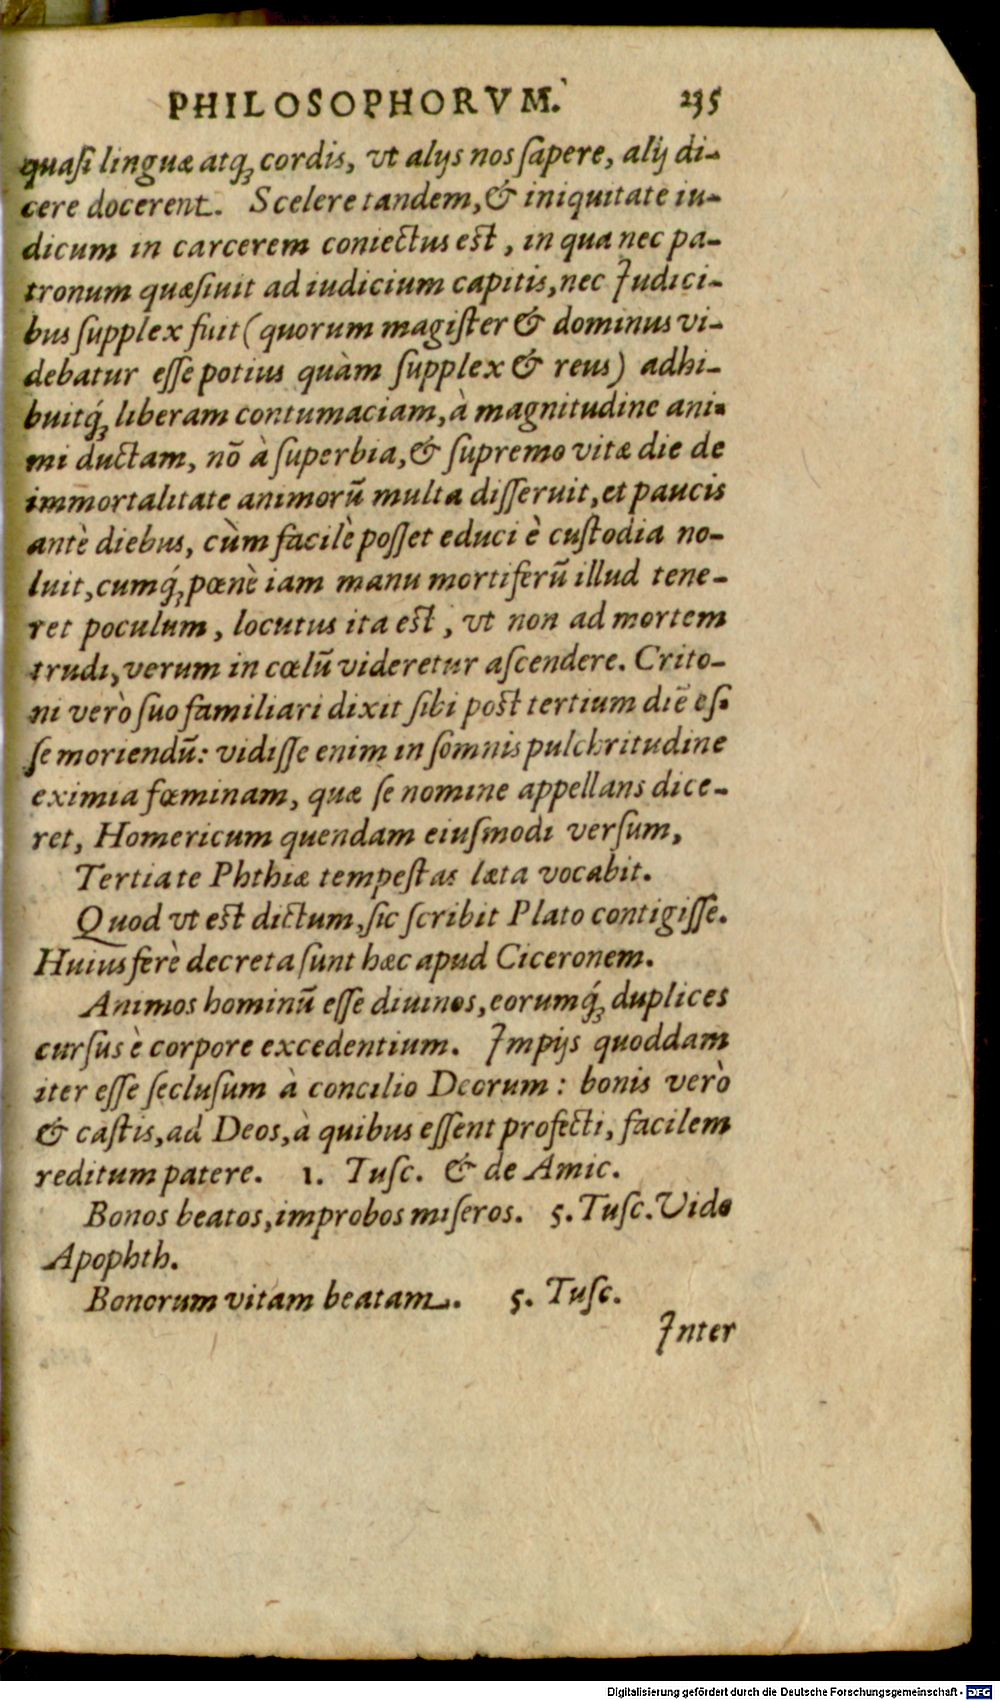 PHILOSOPHORVM. 235
quaſi linguæ atq́ꝫ cordis, vt alijs nos ſapere, alij di-
cere docerent. Scelere tandem, & iniquitate iu-
dicum in carcerem coniectus est, in qua nec pa-
tronum quæſiuit ad iudicium capitis, nec Judici-
bus ſupplex fuit (quorum magiſter & dominus vi-
debatur eſſe potius quàm ſupplex & reus) adhi-
buitq́ꝫ liberam contumaciam, à magnitudine ani-
mi ductam, nō à ſuperbia, & ſupremo vitæ die de
immortalitate animorū multa diſſeruit, et paucis
antè diebus, cùm facilè poſſet educi è cuſtodia no-
luit, cumq́ꝫ pœnè iam manu mortiferū illud tene-
ret poculum, locutus ita est, vt non ad mortem
trudi, verum in cœlū videretur aſcendere. Crito-
ni verò ſuo familiari dixit ſibi post tertium diē eſ-
ſe moriendū: vidiſſe enim in ſomnis pulchritudine
eximia fœminam, quæ ſe nomine appellans dice-
ret, Homericum quendam eiuſmodi verſum,
Tertiate Phthiæ tempeſtas læta vocabit.
Quod vt est dictum, ſic ſcribit Plato contigiſſe.
Huius ferè decreta ſunt hæc apud Ciceronem.
Animos hominū eſſe diuinos, eorumq́ꝫ duplices
curſus è corpore excedentium. Jmpijs quoddam
iter eſſe ſecluſum à concilio Deorum: bonis verò
& caſtis, ad Deos, à quibus eſſent profecti, facilem
reditum patere. 1. Tuſc. & de Amic.
Bonos beatos, improbos miſeros. 5. Tuſc. Vide
Apophth.
Bonorum vitam beatam. 5. Tuſc.
Jnter
Digitalisierung gefördert durch die Deutsche Forschungsgemeinschaft - DFG